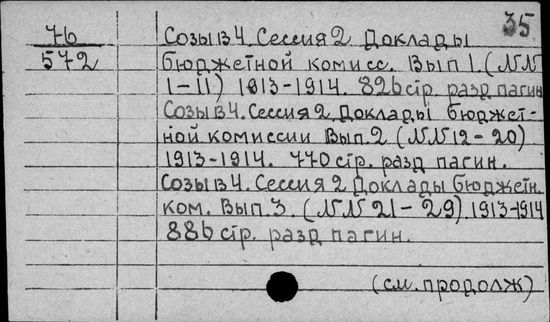 35
76
572
Созыв 4. Сессия 2 Доклады
бюджетной комисс. Вып 1. (NN
1-11) 1913-1914. 826 стр. разд пагин
Созыв 4. Сессия 2 Доклады бюджет-
ной комиссии Вып. 2 (NN 12-20)
1913-1914. 770 стр. разд пагин.
Созыв 4. Сессия 2 Доклады бюджетн.
ком. Вып. 3. (NN 21-29). 1913-1914
886 стр. разд пагин.
(см. продолж)